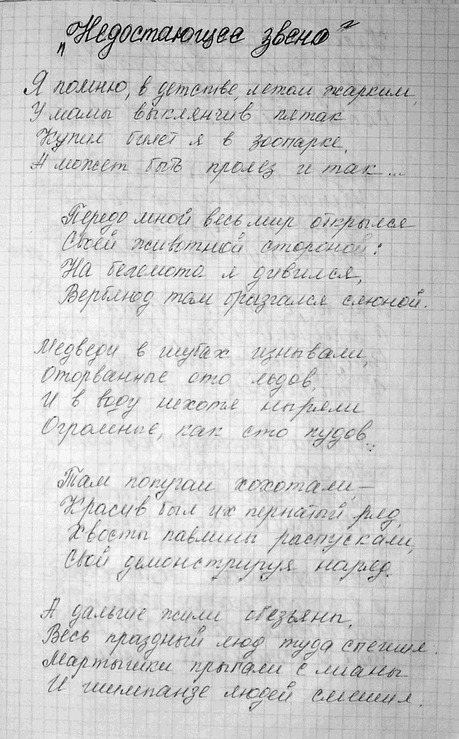 „Недостающее звено"
Я помню, в детстве, летом жарким,
У мамы выклянчив пятак
Купил билет я в зоопарке,
А может быть пролез и так...
Передо мной весь мир открылся
Своей животной стороной:
На бегемота я дивился,
Верблюд там брызгался слюной.
Медведи в шубах изнывали,
Оторванные ото льдов,
И в воду нехотя ныряли
Огромные, как сто пудов...
Там попугаи хохотали, —
Красив был их пернатый ряд,
Хвосты павлины распускали,
Свой демонстрируя наряд.
А дальше жили обезьяны,
Весь праздный люд туда спешил.
Мартышки прыгали с лианы
И шимпанзе людей смешил.